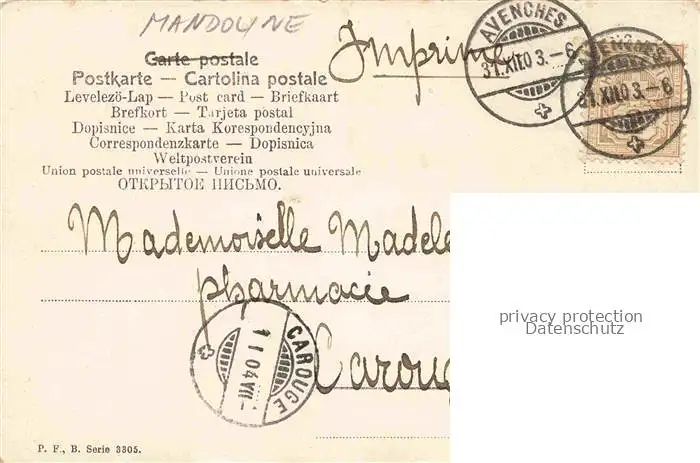 MANDOLINE
Imprimé
Carte postale
Postkarte — Cartolina postale
Levelezö-Lap — Post card — Briefkaart
Brefkort — Tarjeta postal
Dopisnice — Karta Korespondencyjna
Correspondenzkarte — Dopisnica
Weltpostverein
Union postale universelle — Unione postale universale
ОТКРЫТОЕ ПИСЬМО.
AVENCHES
31.XII.03.–6
AVENCHES
31.XII.03.–6
Mademoiselle Madele
pharmacie
Caroug
CAROUGE
1 I 04 VII
privacy protection
Datenschutz
P. F., B. Serie 3305.